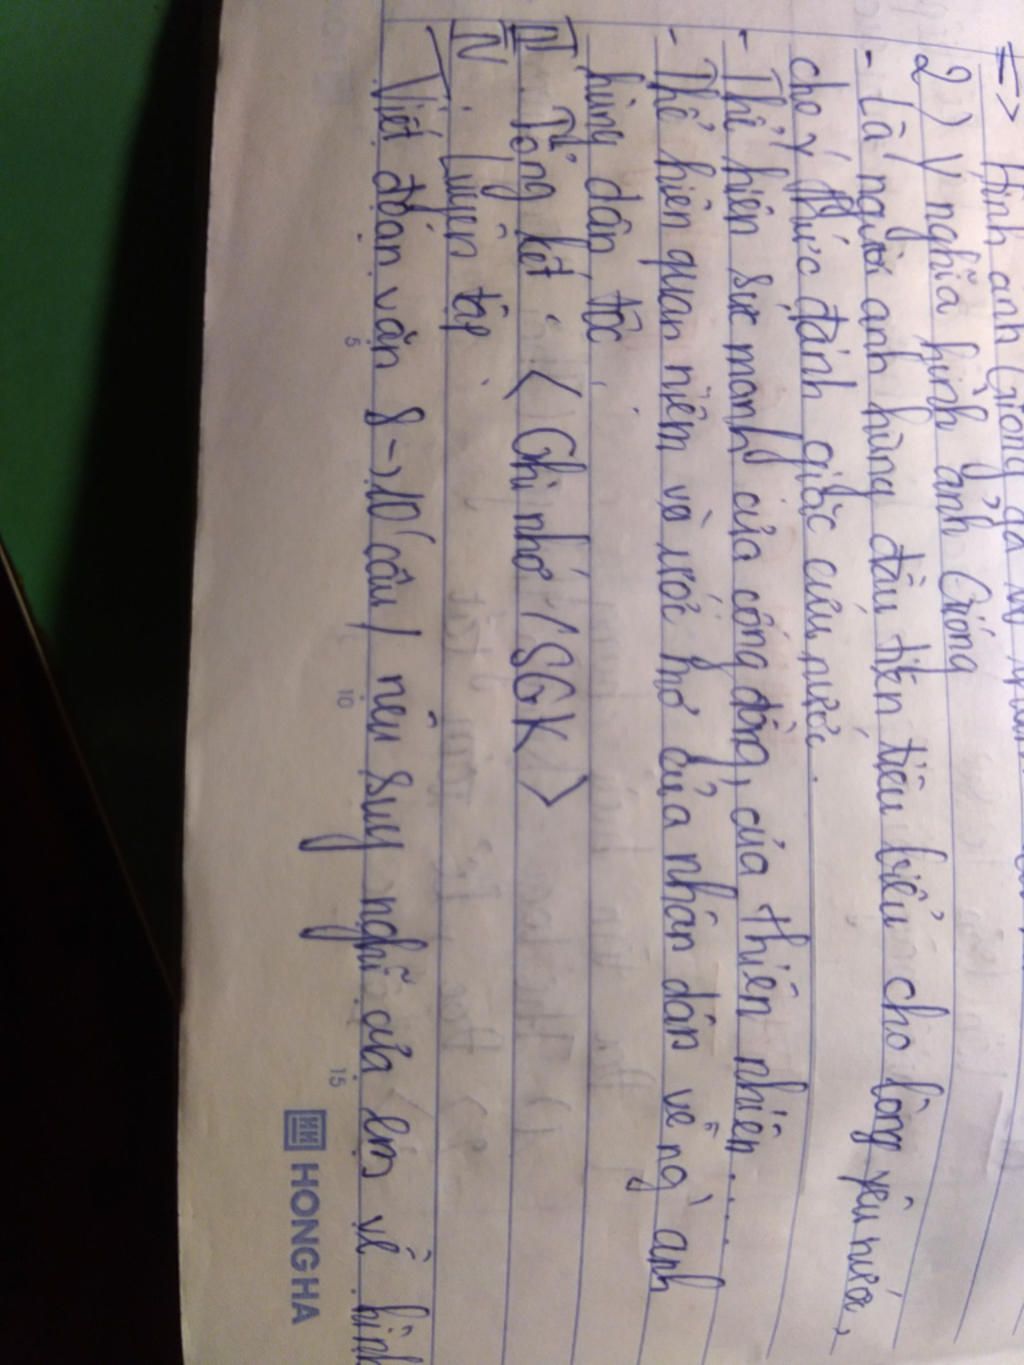 => Hình ảnh Gióng
2) Ý nghĩa hình ảnh Gióng
- Là người anh hùng đầu tiên, tiêu biểu cho lòng yêu nước,
cho ý thức đánh giặc cứu nước.
- Thể hiện sức mạnh của cộng đồng, của thiên nhiên....
- Thể hiện quan niệm và ước mơ của nhân dân về ng` anh
hùng dân tộc.
III. Tổng kết < Ghi nhớ / SGK >
IV. Luyện tập
Viết đoạn văn 8->10 câu / nêu suy nghĩ của em về hình
5 10 15
HONG HA